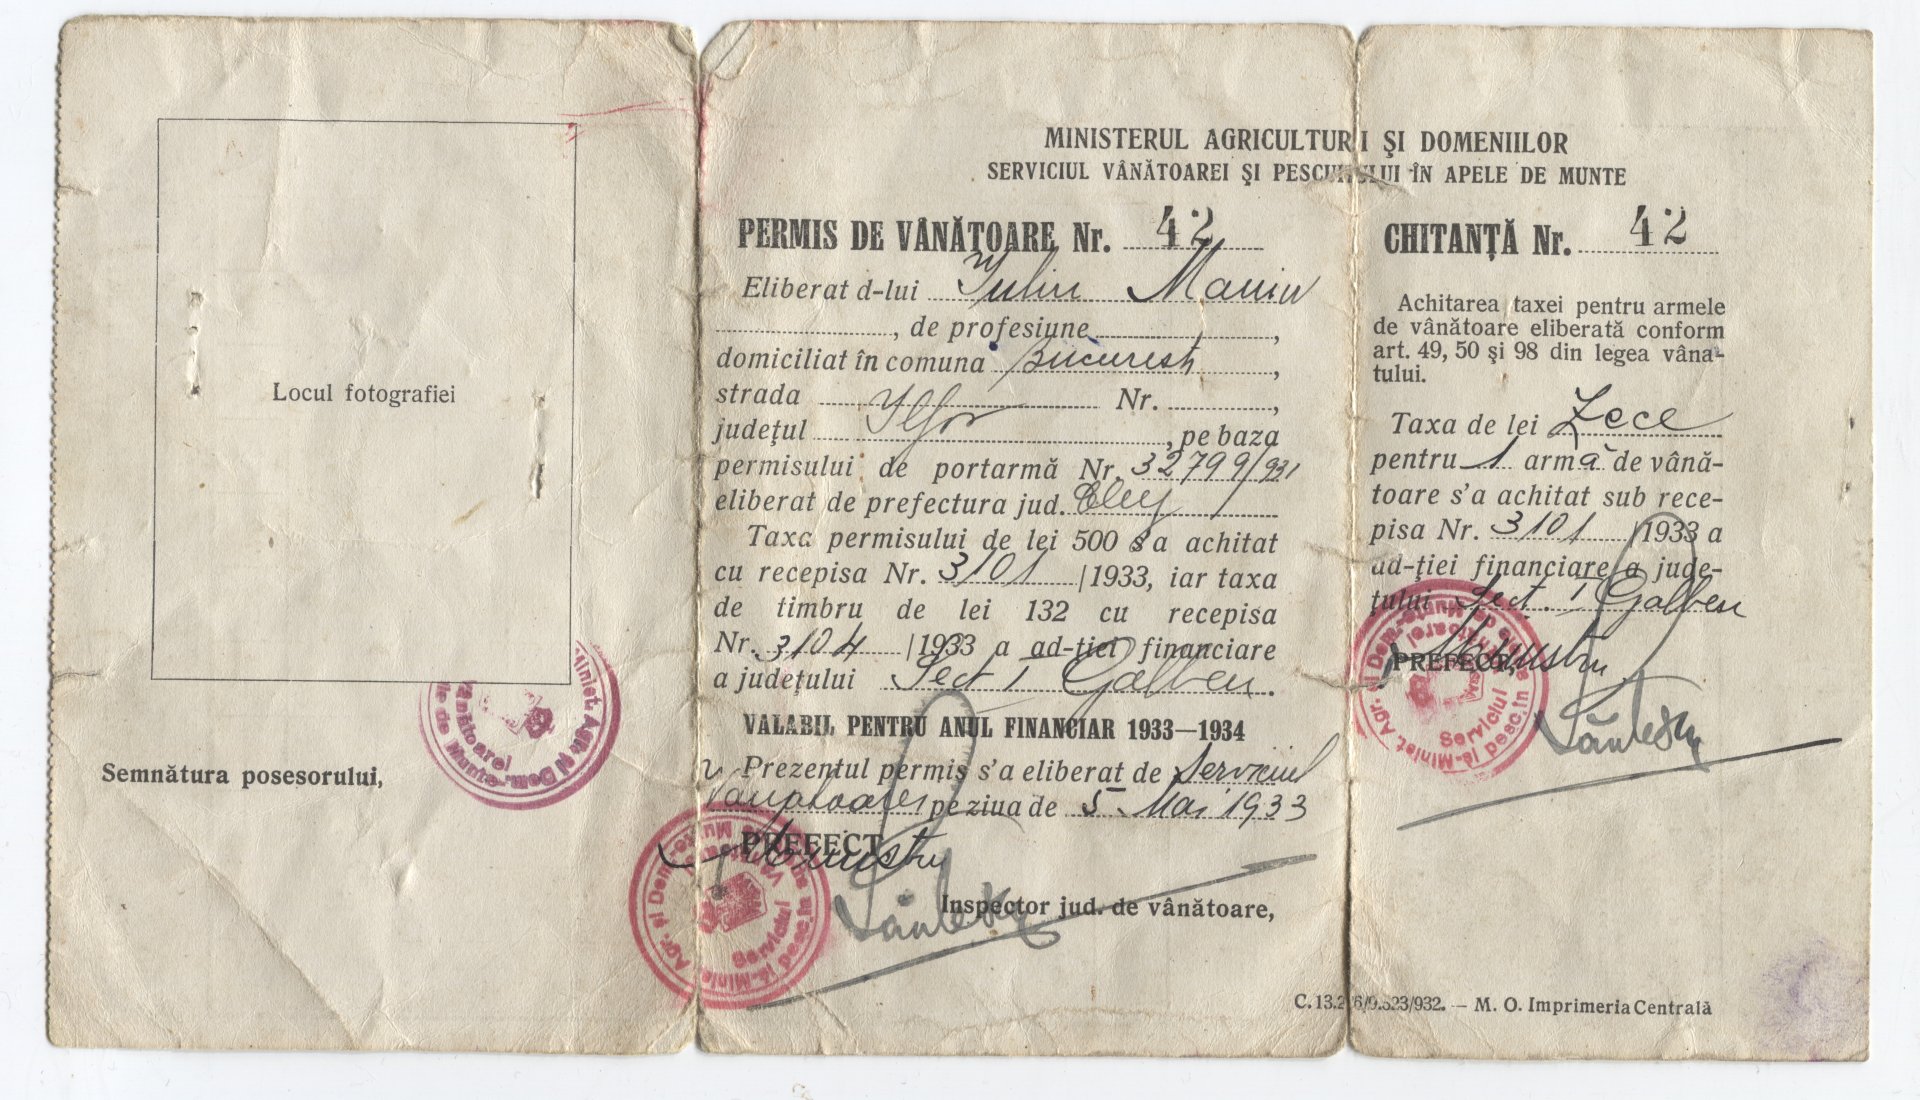 Locul fotografiei
Semnătura posesorului,
MINISTERUL AGRICULTURII ŞI DOMENIILOR
SERVICIUL VÂNĂTOAREI ŞI PESCUITULUI ÎN APELE DE MUNTE
PERMIS DE VÂNĂTOARE Nr. 42
Eliberat d-lui Iuliu Maniu
, de profesiune ,
domiciliat în comuna Bucureşti ,
strada Nr. ,
judeţul Ilfov , pe baza
permisului de portarmă Nr. 32799/931
eliberat de prefectura jud. Cluj
Taxa permisului de lei 500 s'a achitat
cu recepisa Nr. 3101 /1933, iar taxa
de timbru de lei 132 cu recepisa
Nr. 3104 /1933 a ad-ţiei financiare
a judeţului Sect I Galben.
VALABIL PENTRU ANUL FINANCIAR 1933—1934
Prezentul permis s'a eliberat de Serviciul
Vanatoarei pe ziua de 5 Mai 1933
PREFECT
Inspector jud. de vânătoare,
CHITANŢĂ Nr. 42
Achitarea taxei pentru armele
de vânătoare eliberată conform
art. 49, 50 şi 98 din legea vâna-
tului.
Taxa de lei Zece
pentru 1 armă de vână-
toare s'a achitat sub rece-
pisa Nr. 3101 /1933 a
ad-ţiei financiare a jude-
ţului Sect. I Galben
PREFECT,
M. O. Imprimeria Centrală